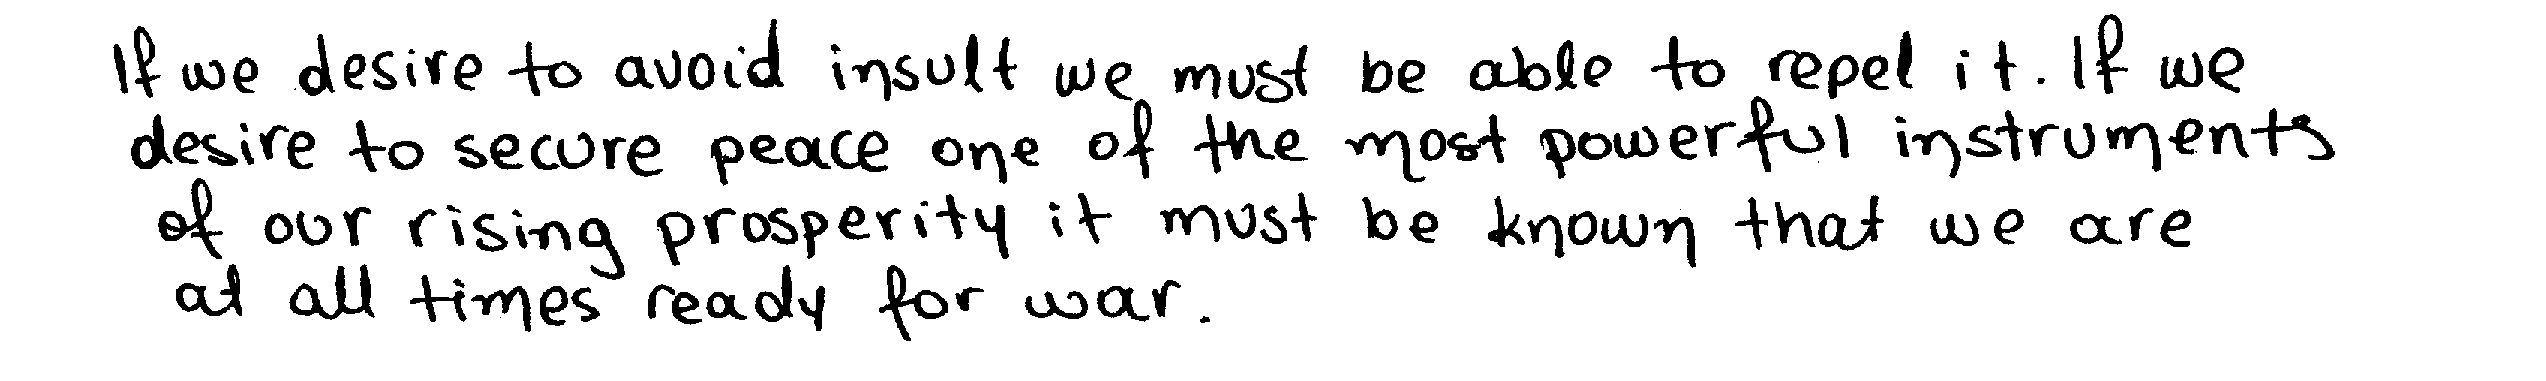 If we desire to avoid insult we must be able to repel it. If we
desire to secure peace one of the most powerful instruments
of our rising prosperity it must be known that we are
at all times ready for war.